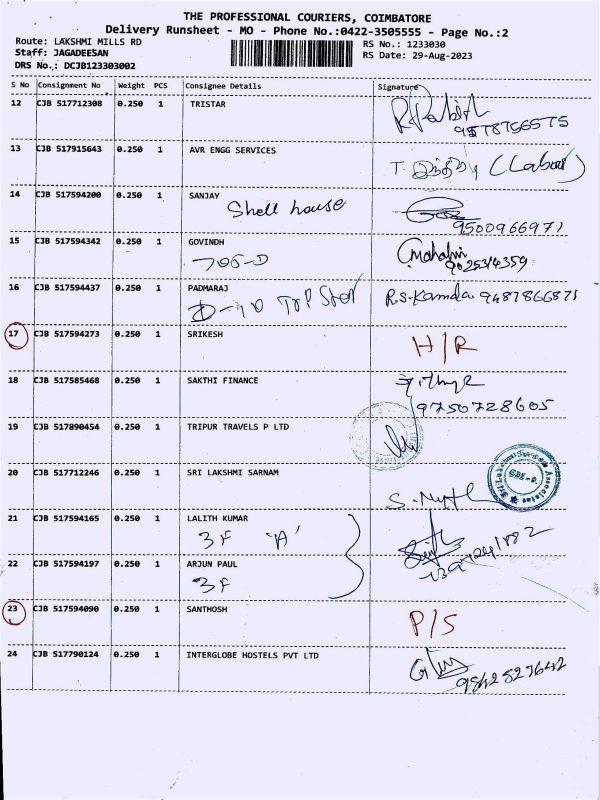 THE PROFESSIONAL COURIERS, COIMBATORE
Delivery Runsheet - MO - Phone No.:0422-3505555 - Page No.:2
Route: LAKSHMI MILLS RD
RS No.: 1233030
Staff: JAGADEESAN
RS Date: 29-Aug-2023
DRS No.,: DCJB123303002
S No Consignment No Weight PCS Consignee Details Signature
12 CJB 517712308 0.250 1 TRISTAR
9578766575
13 CJB 517915643 0.250 1 AVR ENGG SERVICES
T. (Labour)
14 CJB 517594200 0.250 1 SANJAY
Shell house
9500966971
15 CJB 517594342 0.250 1 GOVINDH
706-D
9025314359
16 CJB 517594437 0.250 1 PADMARAJ
D-10 Top Stor R.S.Kamala 9487866871
17 CJB 517594273 0.250 1 SRIKESH
H/R
18 CJB 517585468 0.250 1 SAKTHI FINANCE
9750728605
19 CJB 517890454 0.250 1 TRIPUR TRAVELS P LTD
20 CJB 517712246 0.250 1 SRI LAKSHMI SARNAM
21 CJB 517594165 0.250 1 LALITH KUMAR
3F 'A'
22 CJB 517594197 0.250 1 ARJUN PAUL
3F
23 CJB 517594090 0.250 1 SANTHOSH
P/S
24 CJB 517790124 0.250 1 INTERGLOBE HOSTELS PVT LTD
9842527642